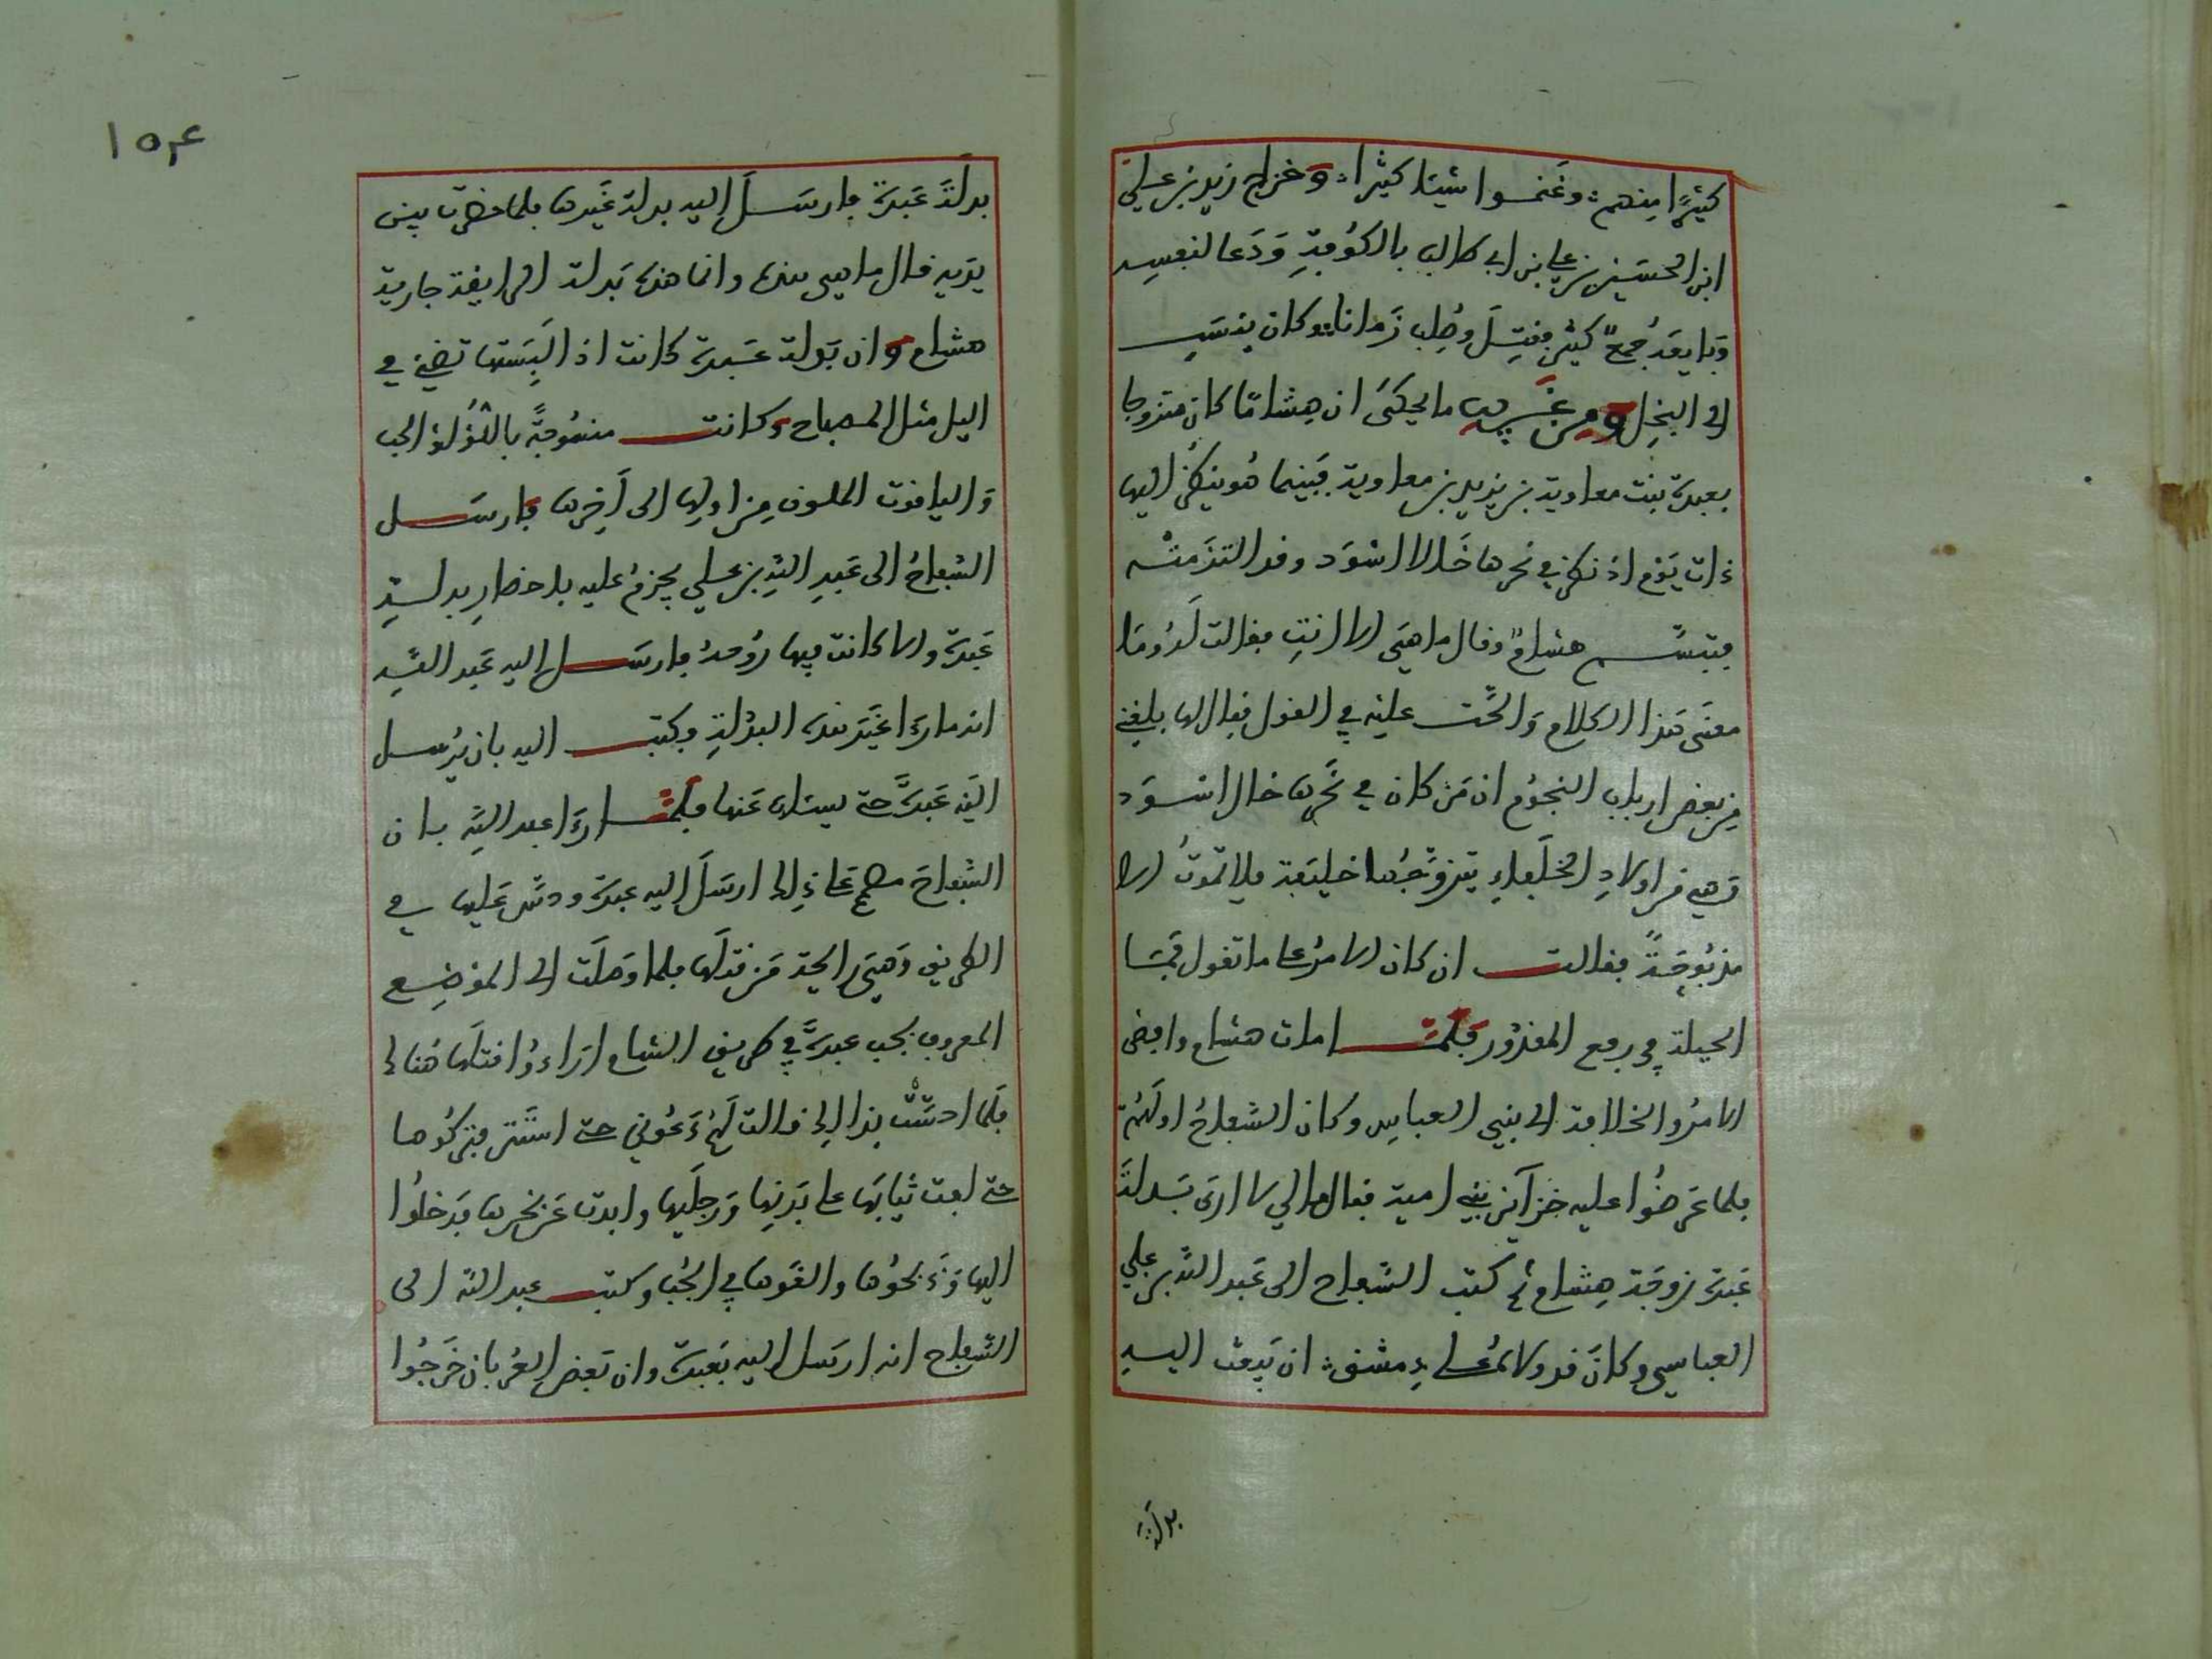 كثيرًا منهم وغنموا شيئا كثيرا وخرج زيد بن علي
ابن الحسين بن علي بن ابي طالب بالكوفة ودعا لنفسه
وبايعه جمع كثير فقتل وصلب زمانا وكان ينسب
الى البخل ومن غريب ما يحكى ان هشامًا كان متزوجا
بعبدة بنت معاوية بن يزيد بن معاوية فبينما هو ينظر اليها
ذات يوم اذ نظر في نحرها خالا اسود وقد التزمته
فتبسم هشام وقال ما هي الا انت فقالت له وما
معنى هذا الكلام والحت عليه في القول فقال لها بلغني
من بعض ارباب النجوم ان من كان في نحرها خال اسود
وهي من اولاد الخلفاء يتزوجها خليفة فلا تموت الا
مذبوحة فقالت ان كان الامر على ما تقول فما
الحيلة في رفع المقدور فلما مات هشام وافضى
الامر والخلافة الى بني العباس وكان السفاح اولهم
فلما عرضوا عليه خزآين بني امية فقال مالي لا ارى بدلة
عبدة زوجة هشام ثم كتب السفاح الى عبد الله بن علي
العباسي وكان قد ولاه على دمشق ان يبعث اليه
بدلة
١٥٤
بدلة عبدة فارسل اليه بدلة غيرها فلما حضرت بين
يديه قال ما هي هذه وانما هذه بدلة الى ايفة جارية
هشام وان بدلة عبدة كانت اذا لبستها تضيئ في
اليل مثل المصباح وكانت منسوجة باللؤلؤ الحب
واليافوت الملون من اولها الى آخرها فارسل
السفاح الى عبد الله بن علي يحزم عليه باحضار بدلة
عبدة ولا كانت فيها روحه فارسل اليه عبد الله
انه ما رءا غير هذه البدلة وكتب اليه بان يرسل
اليه عبدة حتى يسئلها عنها فلما رءا عبد الله بان
السفاح مصمم على ذلك ارسل اليه عبدة ودس عليها في
الطريق وهي رايحة من قتلها فلما وصلت الى الموضع
المعروف بجب عبدة في طريق الشام ارادوا قتلها هنالك
فلما احست بذالك قالت لهم دعوني حتى استتر فتركوها
حتى لفت ثيابها على بدنها ورجليها وابدت عن نحرها فدخلوا
اليها وذبحوها والقوها في الجب وكتب عبد الله الى
السفاح انه ارسل اليه بعبدة وان بعض العربان خرجوا